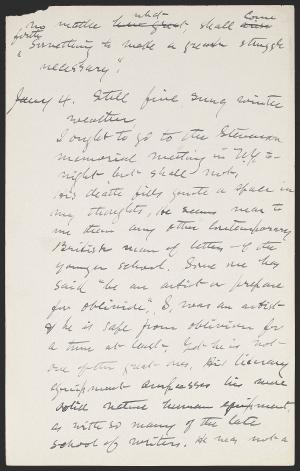 no matter what how great, shall come
forth
"something to make a greater struggle
necessary".
Jany 4. Still fine snug winter
weather
I ought to go to the Stevenson
memorial meeting in N.Y. to-
night but shall not,
His death fills quite a space in
my thoughts, he seems near to
me than any other contemporary
British man of letters - of the
younger school. Some one has
said "be an artist or prepare
for oblivion", S, was an artist
& he is safe from oblivion for
a time at least. Yet he is not
one of the great ones. His literary
equipment surpasses his mere
solid native human equipment,
as with so many of the late
school of writers. He was not a